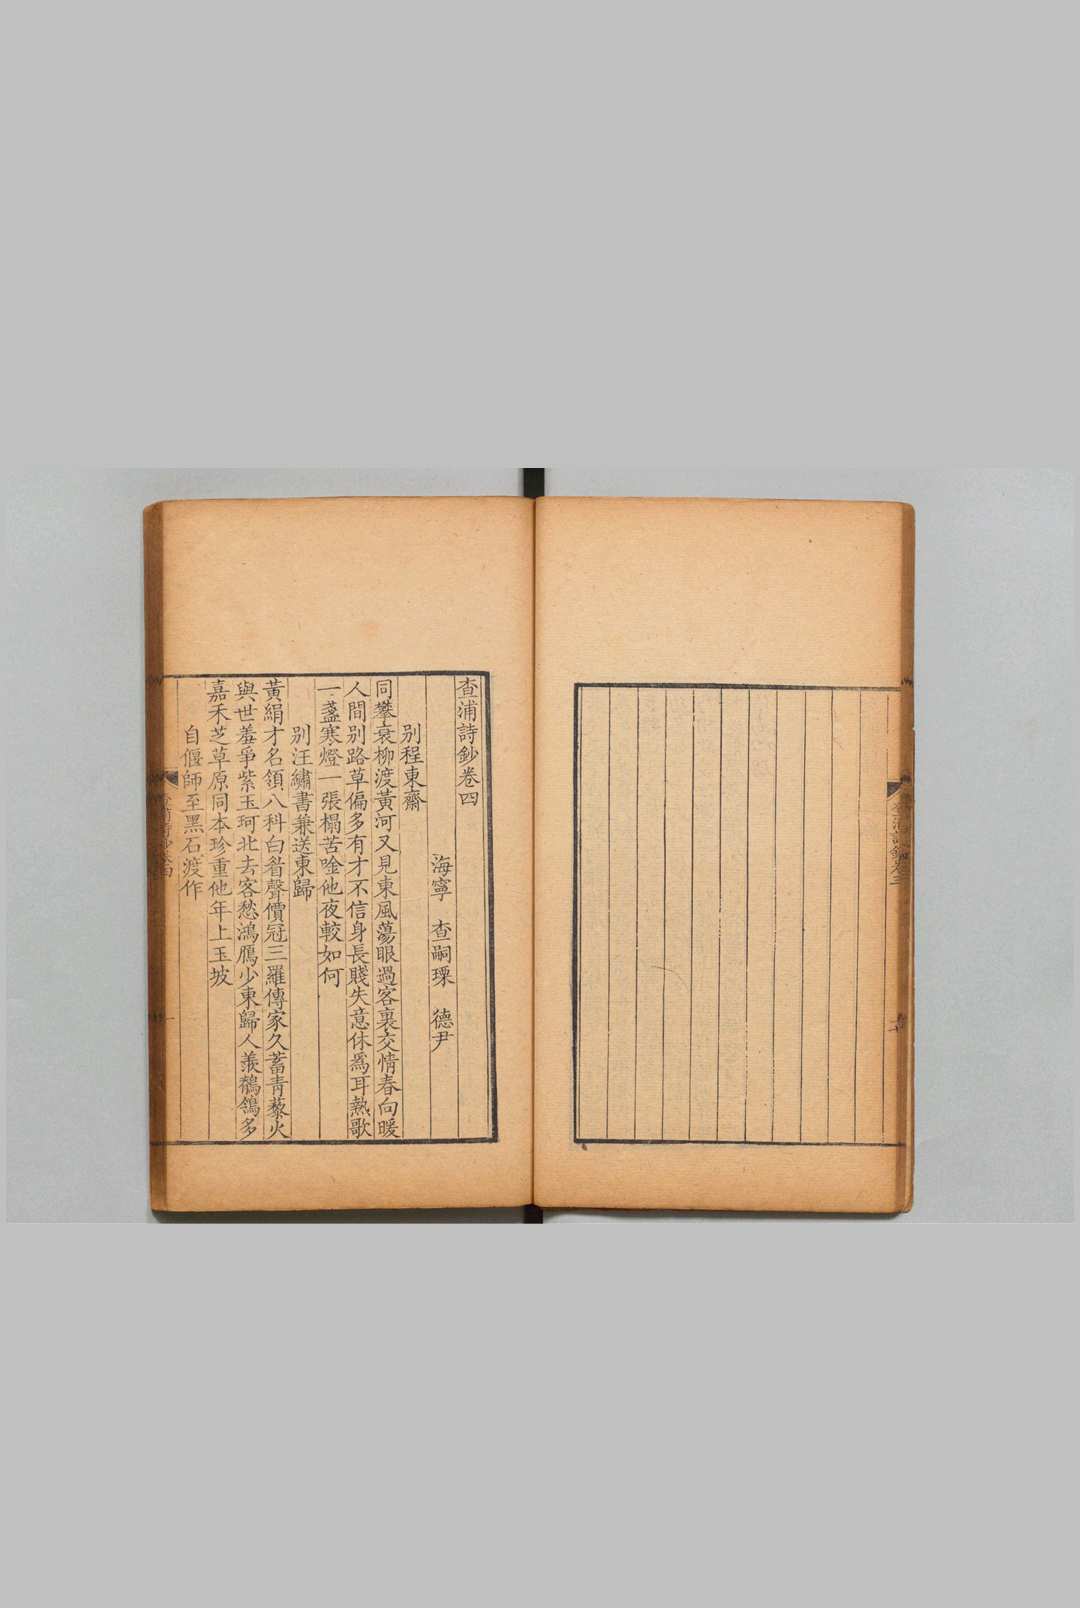 查浦詩鈔卷四
海寧 查嗣瑮 德尹
別程東齋
同攀衰柳渡黃河又見東風蕩眼過客裏交情春向暖
人間別路草偏多有才不信身長賤失意休爲耳熱歌
一盞寒燈一張榻苦唫他夜較如何
別汪繡書兼送東歸
黃絹才名領八科白眉聲價冠三羅傳家久蓄青藜火
與世羞爭紫玉珂北去客愁鴻鴈少東歸人羨鶺鴒多
嘉禾芝草原同本珍重他年上玉坡
自偃師至黑石渡作